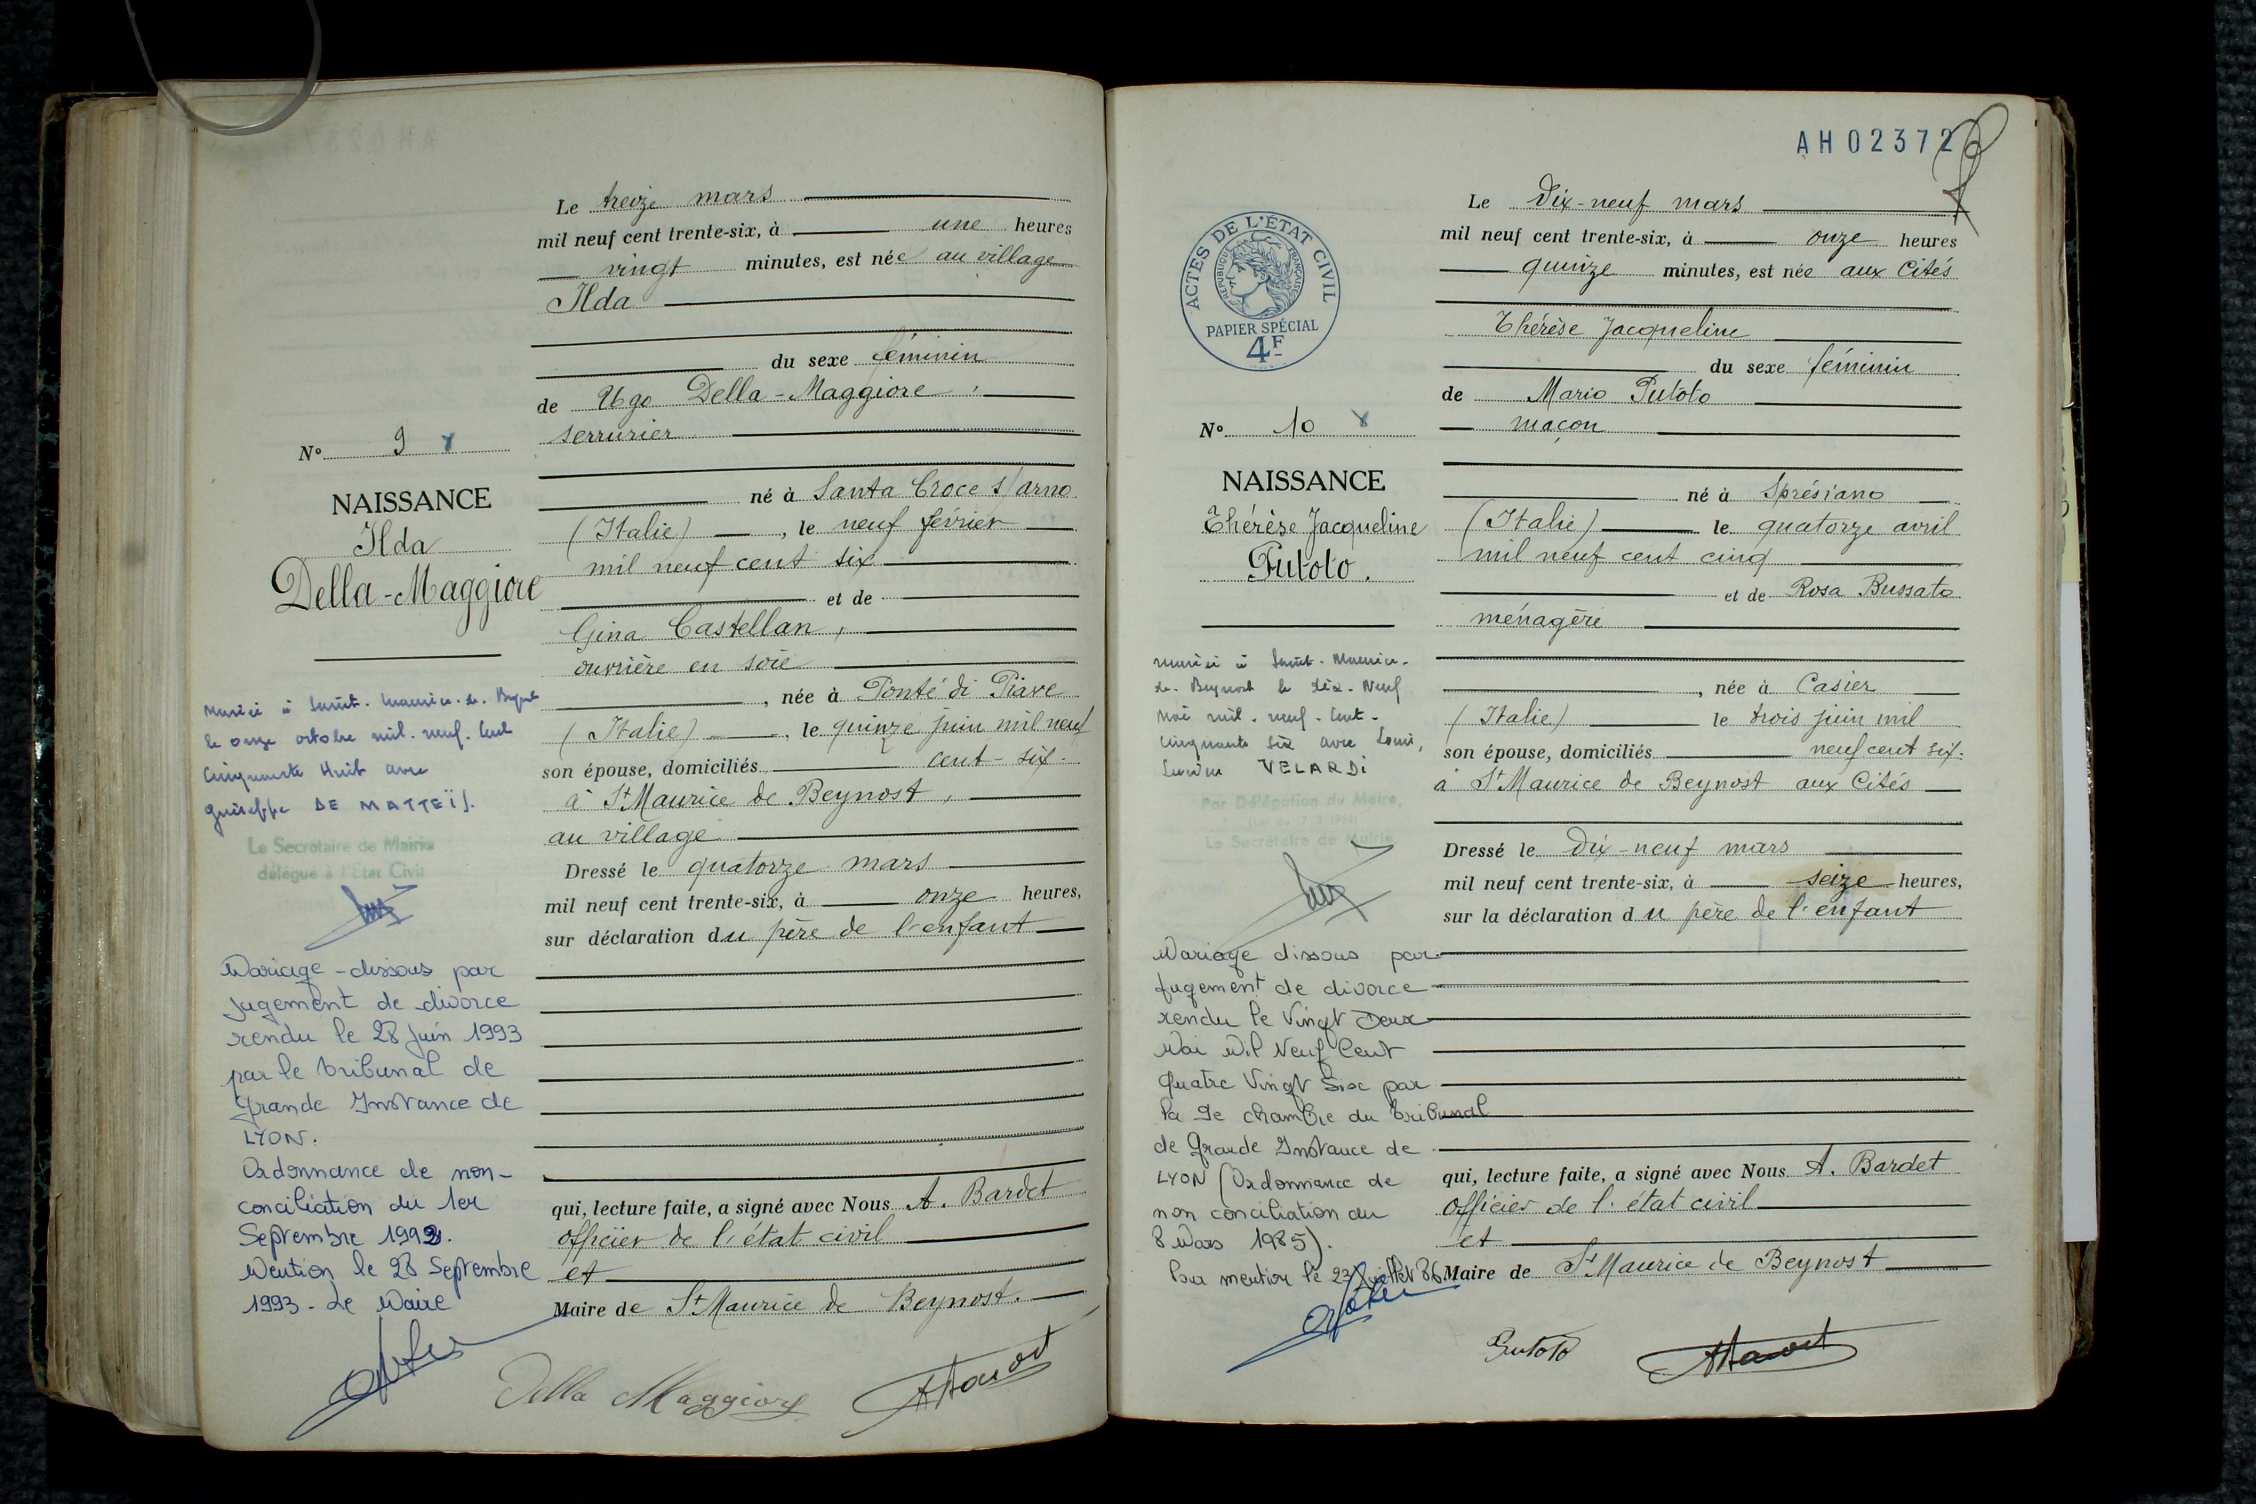 Le treize mars
mil neuf cent trente-six, à une heures
vingt minutes, est née au village
Ilda
du sexe féminin
de Ugo Della-Maggiore,
serrurier
né à Santa Croce s/arno
(Italie), le neuf février
mil neuf cent six
et de
Gina Castellan,
ouvrière en soie
, née à Ponté di Piave
(Italie), le quinze juin mil neuf
son épouse, domiciliés cent-six.
à St Maurice de Beynost,
au village
Dressé le quatorze mars
mil neuf cent trente-six, à onze heures,
sur déclaration du père de l'enfant
qui, lecture faite, a signé avec Nous A. Bardet
officier de l'état civil
et
Maire de St Maurice de Beynost.
Della Maggiore
N° 9
NAISSANCE
Ilda
Della-Maggiore
le onze octobre mil. neuf. Cent
Cinquante Huit avec
DE MATTEÏS.
Le Secrétaire de Mairie
délégué à l'Etat Civil
Mariage-dissous par
jugement de divorce
rendu le 28 Juin 1993
par le tribunal de
Grande Instance de
LYON.
Ordonnance de non-
conciliation du 1er
Septembre 1992.
Mention le 28 Septembre
1993 - Le Maire
AH02372
ACTES DE L'ÉTAT CIVIL
RÉPUBLIQUE FRANÇAISE
PAPIER SPÉCIAL
4F
Le Dix-neuf mars
mil neuf cent trente-six, à onze heures
quinze minutes, est née aux Cités
Thérèse Jacqueline
du sexe féminin
de Mario Putoto
maçon
né à Sprésiano
(Italie) le quatorze avril
mil neuf cent cinq
et de Rosa Bussato
ménagère
, née à Casier
(Italie) le trois juin mil
son épouse, domiciliés neuf cent six.
à St Maurice de Beynost aux Cités
Dressé le Dix-neuf mars
mil neuf cent trente-six, à seize heures,
sur la déclaration du père de l'enfant
qui, lecture faite, a signé avec Nous A. Bardet
officier de l'état civil
et
Maire de St Maurice de Beynost
Putoto
N° 10
NAISSANCE
Thérèse Jacqueline
Putoto.
de. Beynost le dix. Neuf
Mai mil. neuf. Cent.
Cinquante Six avec Louis,
VELARDI
Par Délégation du Maire,
Le Secrétaire de Mairie
Mariage dissous par
jugement de divorce
rendu le Vingt Deux
Mai Mil Neuf Cent
Quatre Vingt Six par
la 9e chambre du tribunal
de Grande Instance de
LYON (Ordonnance de
non conciliation du
8 Mars 1985).
Pour mention le 23 Juillet 86